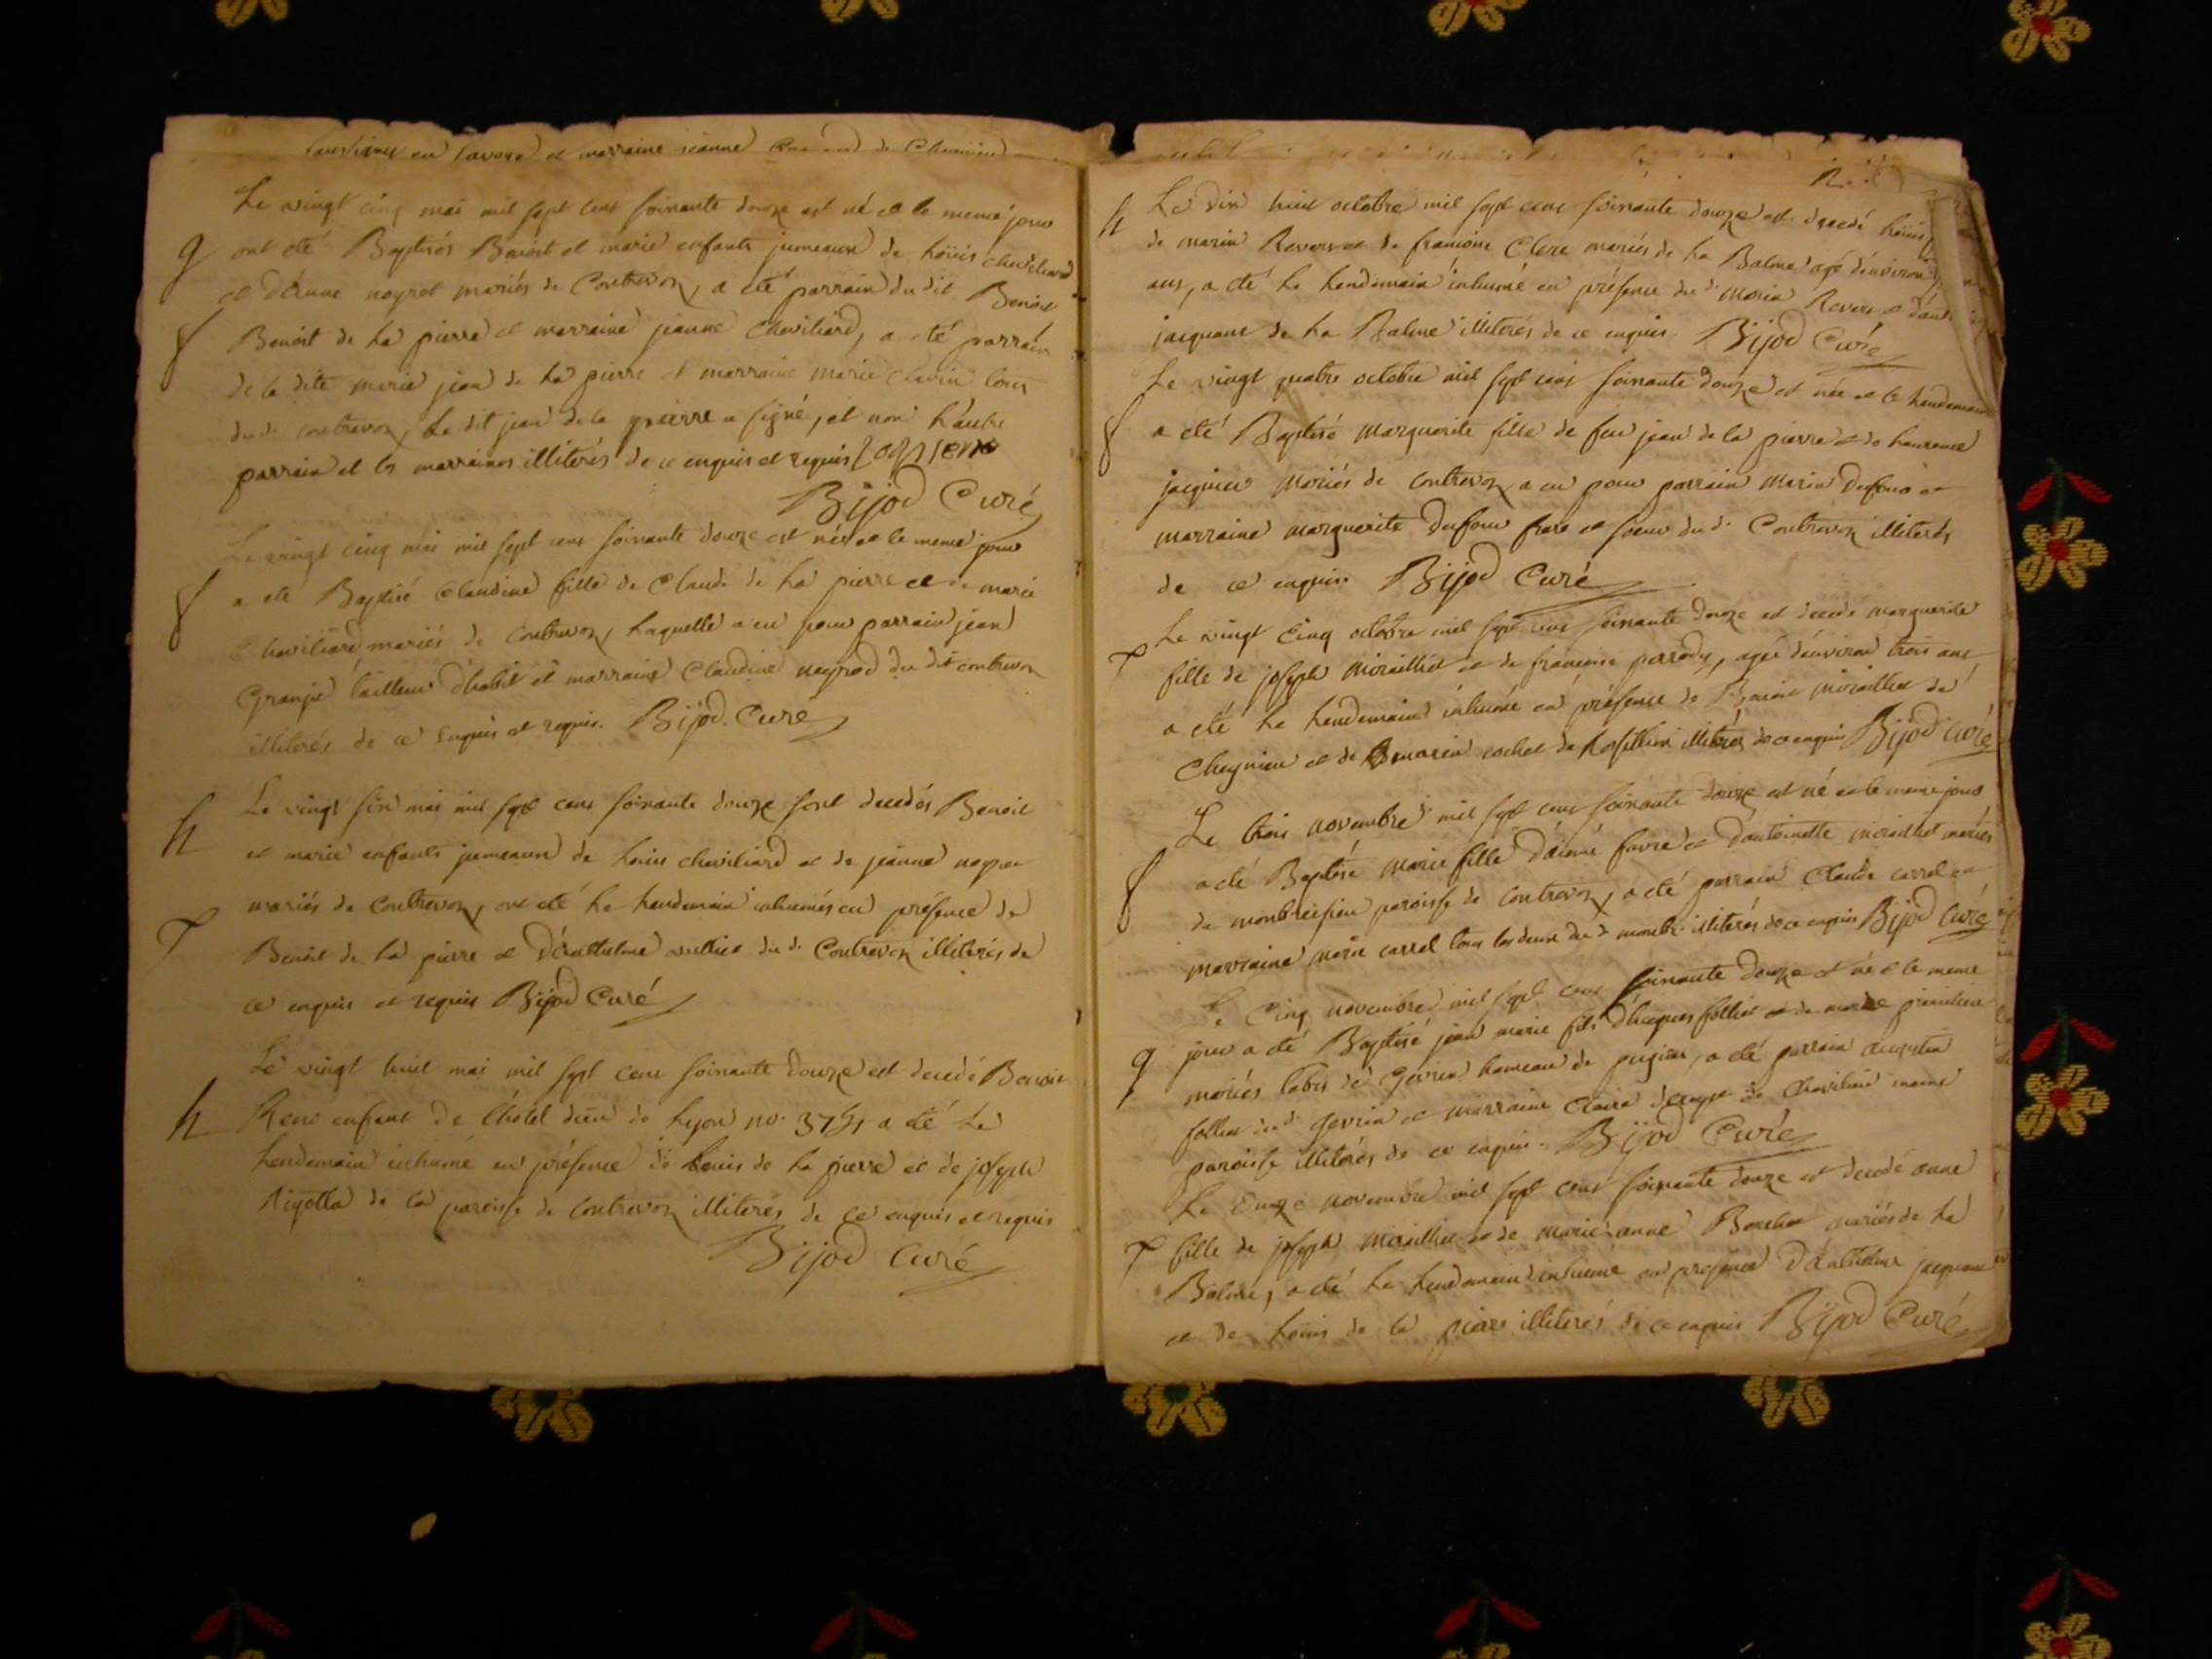 et marraine jeanne de
Le vingt cinq mai mil sept cens soixante douze est né et le meme jour
g ont eté Baptisés Benoit et marie enfants jumeaux de Loüis chaviliard
et d'Anne neyret mariés de Contrevoz, a eté parrain du dit Benoit
f Benoit de La pierre et marraine jeanne Chaviliard, a eté parrain
de la dite marie jean de La pierre et marraine marie clavin tous
du d. contrevoz, Le dit jean de la pierre a signé, et non L'autre
parrain et les marraines illiterés de ce enquis et requis
Bijod Curé
Le vingt cinq mai mil sept cens soixante douze est née et le meme jour
f a eté Baptisé Claudine fille de Claude de La pierre et de marie
Chaviliard mariés de Contrevoz, Laquelle a eu pour parrain jean
Granjé tailleur d'habit et marraine Claudine neyrod du dit contrevoz
illiterés de ce enquis et requis. Bijod. Curé
h Le vingt six mai mil sept cens soixante douze sont decedés Benoit
et marie enfants jumeaux de Louis chaviliard et de jeanne
mariés de Contrevoz, ont eté Le Lendemain inhumés en présence de
Benoit de La pierre et D'Anthelme du d. Contrevoz illiterés de
ce enquis et requis Bijod Curé
Le vingt huit mai mil sept cens soixante douze est decedé Benoit
h René enfant de L'hotel dieu de Lyon no. a eté Le
Lendemain inhumé en présence de Louis de La pierre et de joseph
Rigolla de La paroisse de Contrevoz illiterés de ce enquis et requis
Bijod Curé
h Le dix huit octobre mil sept cens soixante douze est decedé Loüis
de marin Revers et de francoise Clerc mariés de La Balme agé d'environ
ans, a eté Le Lendemain inhumé en présence du d. marin Revers et
jacquand de La Balme illiterés de ce enquis Bijod Curé
Le vingt quatre octobre mil sept cens soixante douze est née et le Lendemain
f a eté Baptisé Marguerite fille de feu jean de la pierre et de Laurence
mariés de contrevoz a eu pour parrain marin Dufour et
marraine marguerite Dufour frere et soeur du d. Contrevoz illiterés
de ce enquis Bijod Curé
Le vingt Cinq octobre mil sept cens soixante douze est decedé marguerite
fille de joseph miraillet et de francoise, agée d'environ trois ans
a eté Le Lendemain inhumé en présence de Benoit miraillet de
Cheignieu et de marin cochet de Rossillion illiterés de ce enquis Bijod Curé
Le trois novembre mil sept cens soixante douze est né et le meme jour
f a eté Baptisé marie fille d'aimé favre et d'antoinette miraillet mariés
de montbreisieu paroisse de contrevoz, a eté parrain Claude carrel et
marraine marie carrel tous les deux du d. montb. illiterés de ce enquis Bijod Curé
Le Cinq novembre mil sept cens soixante douze est né et le meme
g jour a eté Baptisé jean marie fils d'Jacques folliet et de marie
mariés de Gevrin hameau de pugieu, a eté parrain augustin
folliet du d. Gevrin et marraine Claire de Chavilieu meme
paroisse illiterés de ce enquis. Bijod Curé
Le Onze novembre mil sept cens soixante douze est decedé anne
fille de joseph miraillet et de marie anne Borchet mariés de La
Balme, a eté Le Lendemain inhumé en présence D'Anthelme jacquand
et de Loüis de La pierre illiterés de ce enquis Bijod Curé